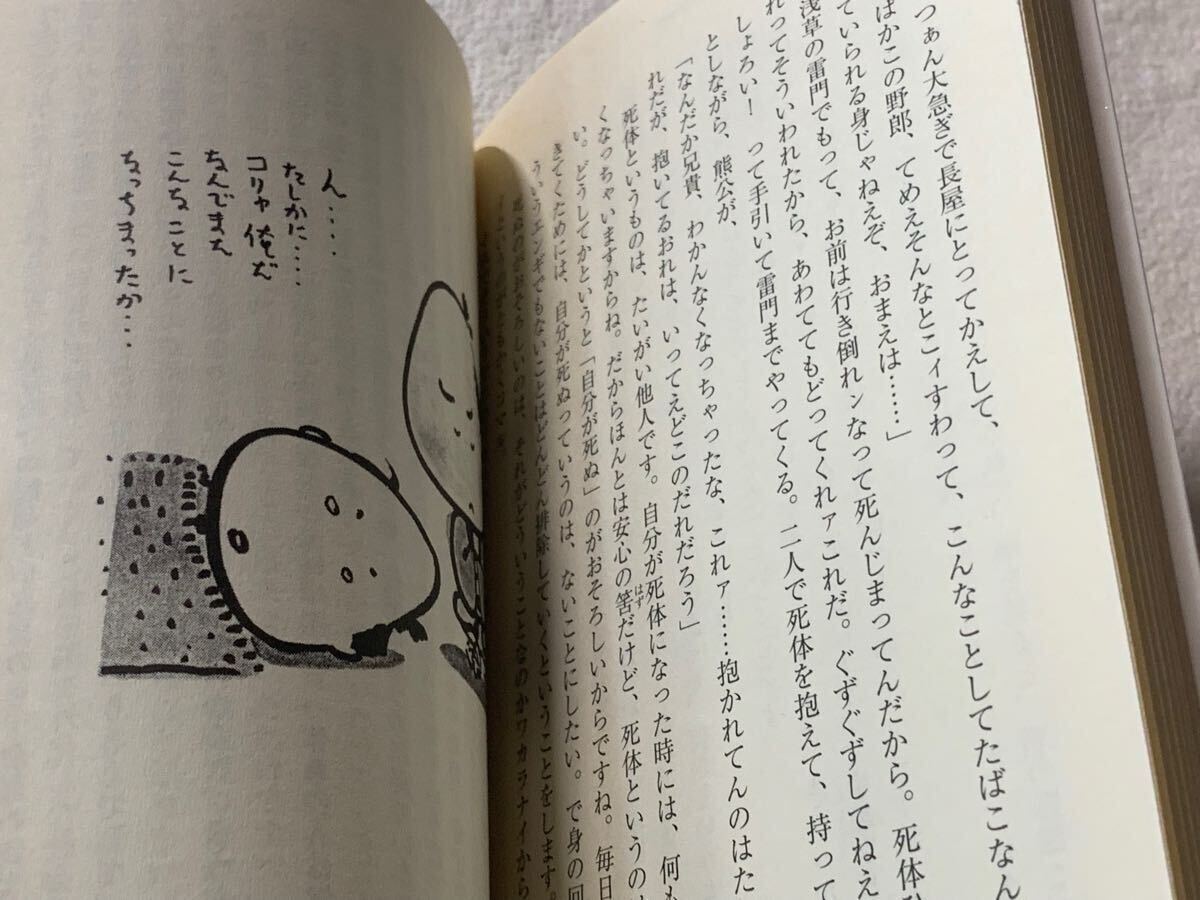 つぁん大急ぎで長屋にとってかえして、
ばかこの野郎、てめえそんなとこィすわって、こんなことしてたばこなん
ていられる身じゃねえぞ、おまえは……」
浅草の雷門でもって、お前は行き倒れンなって死んじまってんだから。死体
れってそういわれたから、あわててもどってくれァこれだ。ぐずぐずしてねえ
しょろい！　って手引いて雷門までやってくる。二人で死体を抱えて、持って
としながら、熊公が、
「なんだか兄貴、わかんなくなっちゃったな、これァ……抱かれてんのはた
れだが、抱いてるおれは、いってえどこのだれだろう」
死体というものは、たいがい他人です。自分が死体になった時には、何も
くなっちゃいますからね。だからほんとは安心の筈だけど、死体というの
はず
い。どうしてかというと「自分が死ぬ」のがおそろしいからですね。毎日
きてくためには、自分が死ぬっていうのは、ないことにしたい。で身の回
ういうエンギでもないことはどんどん排除していくということをします。
のがおそろしいのは、それがどういうことなのかワカラナイから
ん‥‥
たしかに‥‥
コリャ 俺だ
なんでまた
こんなことに
なっちまったか‥‥